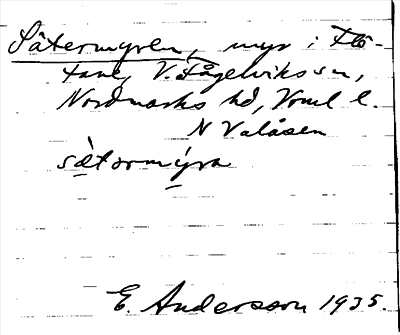 Sätermyren, myr i Flö-
tane, V. Fågelviks sn,
Nordmarks hd, Vrml l.
N Valåsen
sàtormýra
E. Andersson 1935.